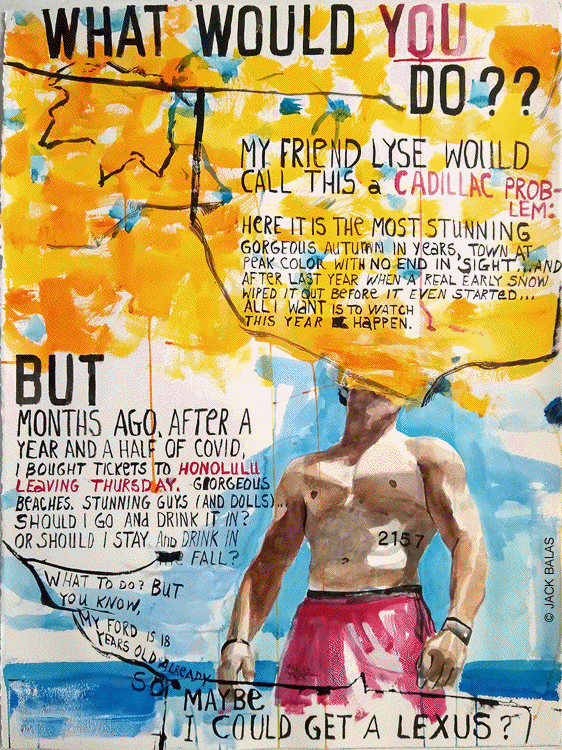 WHAT WOULD YOU
DO??
MY FRIEND LYSE WOULD
CALL THIS a CADILLAC PROB-
LEM:
HERE IT IS THE MOST STUNNING
GORGEOUS AUTUMN IN YEARS, TOWN AT
PEAK COLOR WITH NO END IN SIGHT,...AND
AFTER LAST YEAR WHEN A REAL EARLY SNOW
WIPED IT OUT BEFORE IT EVEN STARTED...
ALL I WANT IS TO WATCH
THIS YEAR HAPPEN.
BUT
MONTHS AGO, AFTER A
YEAR AND A HALF OF COVID,
I BOUGHT TICKETS TO HONOLULU
LEAVING THURSDAY. GORGEOUS
BEACHES. STUNNING GUYS (AND DOLLS)...
SHOULD I GO AND DRINK IT IN?
OR SHOULD I STAY AND DRINK IN
FALL?
2157
WHAT TO DO? BUT
YOU KNOW,
MY FORD IS 18
YEARS OLD ALREADY
SO MAYBE
I COULD GET A LEXUS?
© JACK BALAS